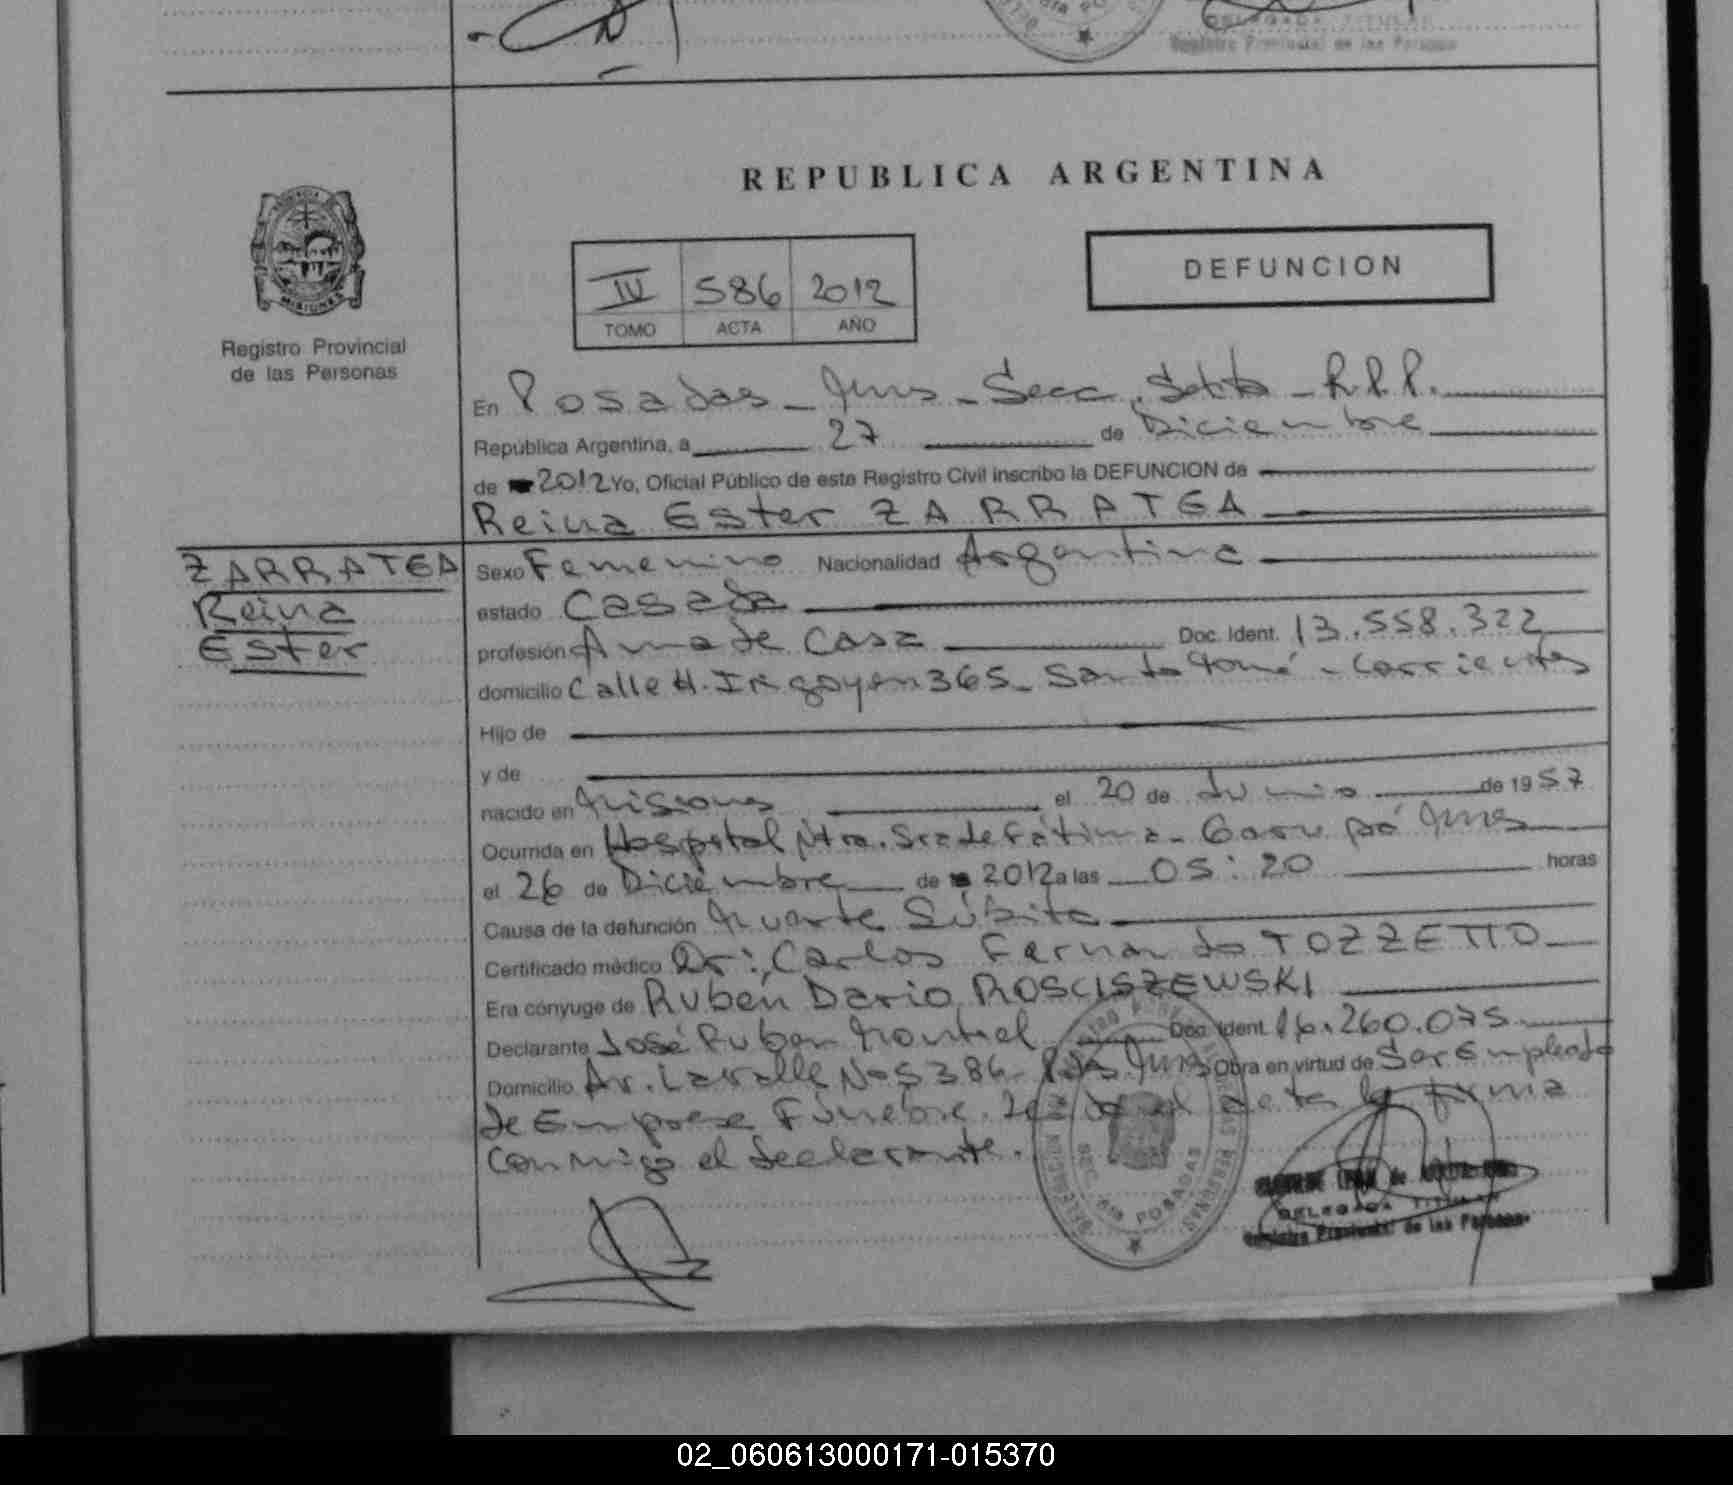 DELEGADA TITULAR
Registro Provincial de las Personas
REPUBLICA ARGENTINA
MISIONES
Registro Provincial
de las Personas
IV 586 2012
TOMO ACTA AÑO
DEFUNCION
En Posadas - Mnes - Secc. Sexta - R.P.P.
República Argentina, a 27 de Diciembre
de 2012 Yo, Oficial Público de este Registro Civil inscribo la DEFUNCION de
Reina Ester ZARRATEA
ZARRATEA
Reina
Ester
Sexo Femenino Nacionalidad Argentina
estado Casada
profesión Ama de Casa Doc. Ident. 13.558.322
domicilio Calle H. Irigoyen 365 - Santo Tomé - Corrientes
Hijo de
y de
nacido en Misiones el 20 de Junio de 1957
Ocurrida en Hospital Ntra. Sra de Fátima - Garupá Mnes
el 26 de Diciembre de 2012 a las 05:20 horas
Causa de la defunción Muerte Súbita
Certificado médico Dr: Carlos Fernando TOZZETTO
Era cónyuge de Rubén Dario ROSCISZEWSKI
Declarante José Ruben Montiel Doc. Ident. 16.260.075
Domicilio Av. Lavalle Nº 5386 - Pdas Mnes Obra en virtud de Ser Empleado
de Empresa Fúnebre. Leída el acta la firma
conmigo el declarante.
POSADAS
DELEGADA TITULAR
Registro Provincial de las Personas
02_060613000171-015370